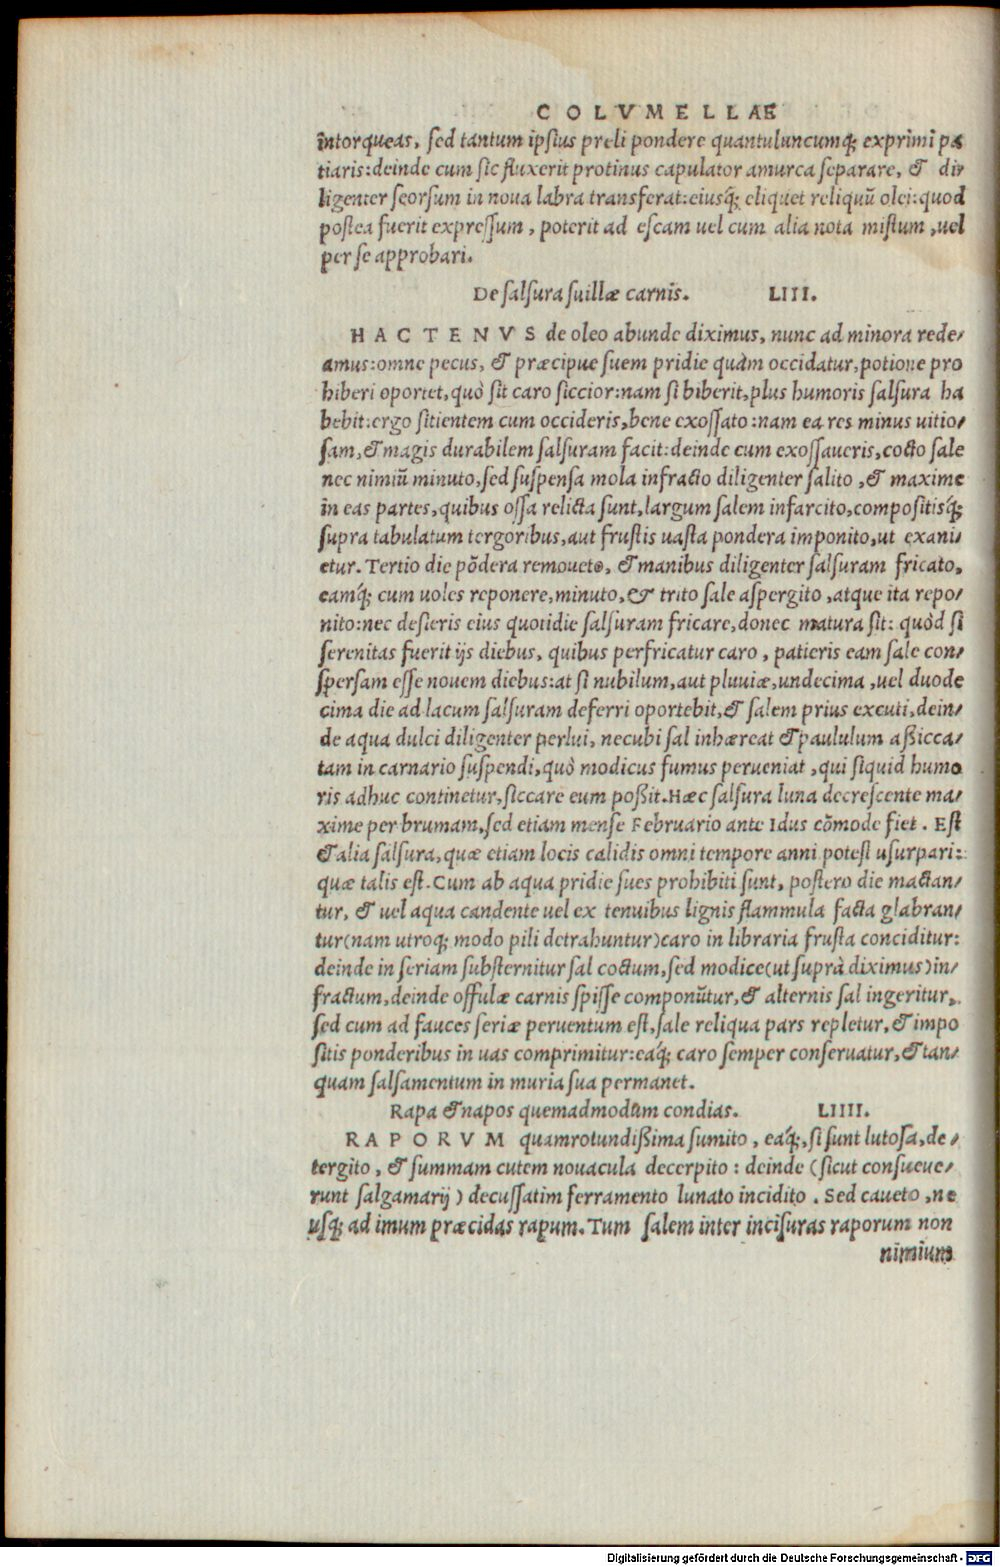 COLVMELLAE
intorqueas, sed tantum ipsius preli pondere quantuluncumq; exprimi pa
tiaris:deinde cum sic fluxerit protinus capulator amurca separare, & di-
ligenter seorsum in noua labra transferat:eiusq́; eliquet reliquū olei:quod
postea fuerit expressum, poterit ad escam uel cum alia nota mistum, uel
per se approbari.
De salsura suillæ carnis. LIII.
HACTENVS de oleo abunde diximus, nunc ad minora rede-
amus:omne pecus, & præcipue suem pridie quàm occidatur, potione pro
hiberi oportet, quò sit caro siccior:nam si biberit, plus humoris salsura ha
bebit:ergo sitientem cum occideris, bene exossato:nam ea res minus uitio-
sam, & magis durabilem salsuram facit:deinde cum exossaueris, cocto sale
nec nimiū minuto, sed suspensa mola infracto diligenter salito, & maxime
in eas partes, quibus ossa relicta sunt, largum salem infarcito, compositisq́;
supra tabulatum tergoribus, aut frustis uasta pondera imponito, ut exani-
etur. Tertio die pōdera remoueto, & manibus diligenter salsuram fricato,
eamq́; cum uoles reponere, minuto, & trito sale aspergito, atque ita repo-
nito:nec desieris eius quotidie salsuram fricare, donec matura sit: quòd si
serenitas fuerit ijs diebus, quibus perfricatur caro, patieris eam sale con-
spersam esse nouem diebus:at si nubilum, aut pluuiæ, undecima, uel duode
cima die ad lacum salsuram deferri oportebit, & salem prius excuti, dein-
de aqua dulci diligenter perlui, necubi sal inhæreat & paululum aßicca-
tam in carnario suspendi, quò modicus fumus perueniat, qui siquid humo
ris adhuc continetur, siccare eum poßit. Hæc salsura luna decrescente ma-
xime per brumam, sed etiam mense Februario ante Idus cōmode fiet. Est
& alia salsura, quæ etiam locis calidis omni tempore anni potest usurpari:
quæ talis est. Cum ab aqua pridie sues prohibiti sunt, postero die mactan-
tur, & uel aqua candente uel ex tenuibus lignis flammula facta glabran-
tur(nam utroq; modo pili detrahuntur)caro in libraria frusta conciditur:
deinde in seriam substernitur sal coctum, sed modice(ut suprà diximus)in-
fractum, deinde offulæ carnis spisse componūtur, & alternis sal ingeritur,
sed cum ad fauces seriæ peruentum est, sale reliqua pars repletur, & impo
sitis ponderibus in uas comprimitur:eaq́; caro semper conseruatur, & tan-
quam salsamentum in muria sua permanet.
Rapa & napos quemadmodum condias. LIIII.
RAPORVM quamrotundißima sumito, eaq́;, si sunt lutosa, de-
tergito, & summam cutem nouacula decerpito: deinde (sicut consueue-
runt salgamarij) decussatim ferramento lunato incidito. Sed caueto, ne
usq́; ad imum præcidas rapum. Tum salem inter incisuras raporum non
nimium
Digitalisierung gefördert durch die Deutsche Forschungsgemeinschaft - DFG